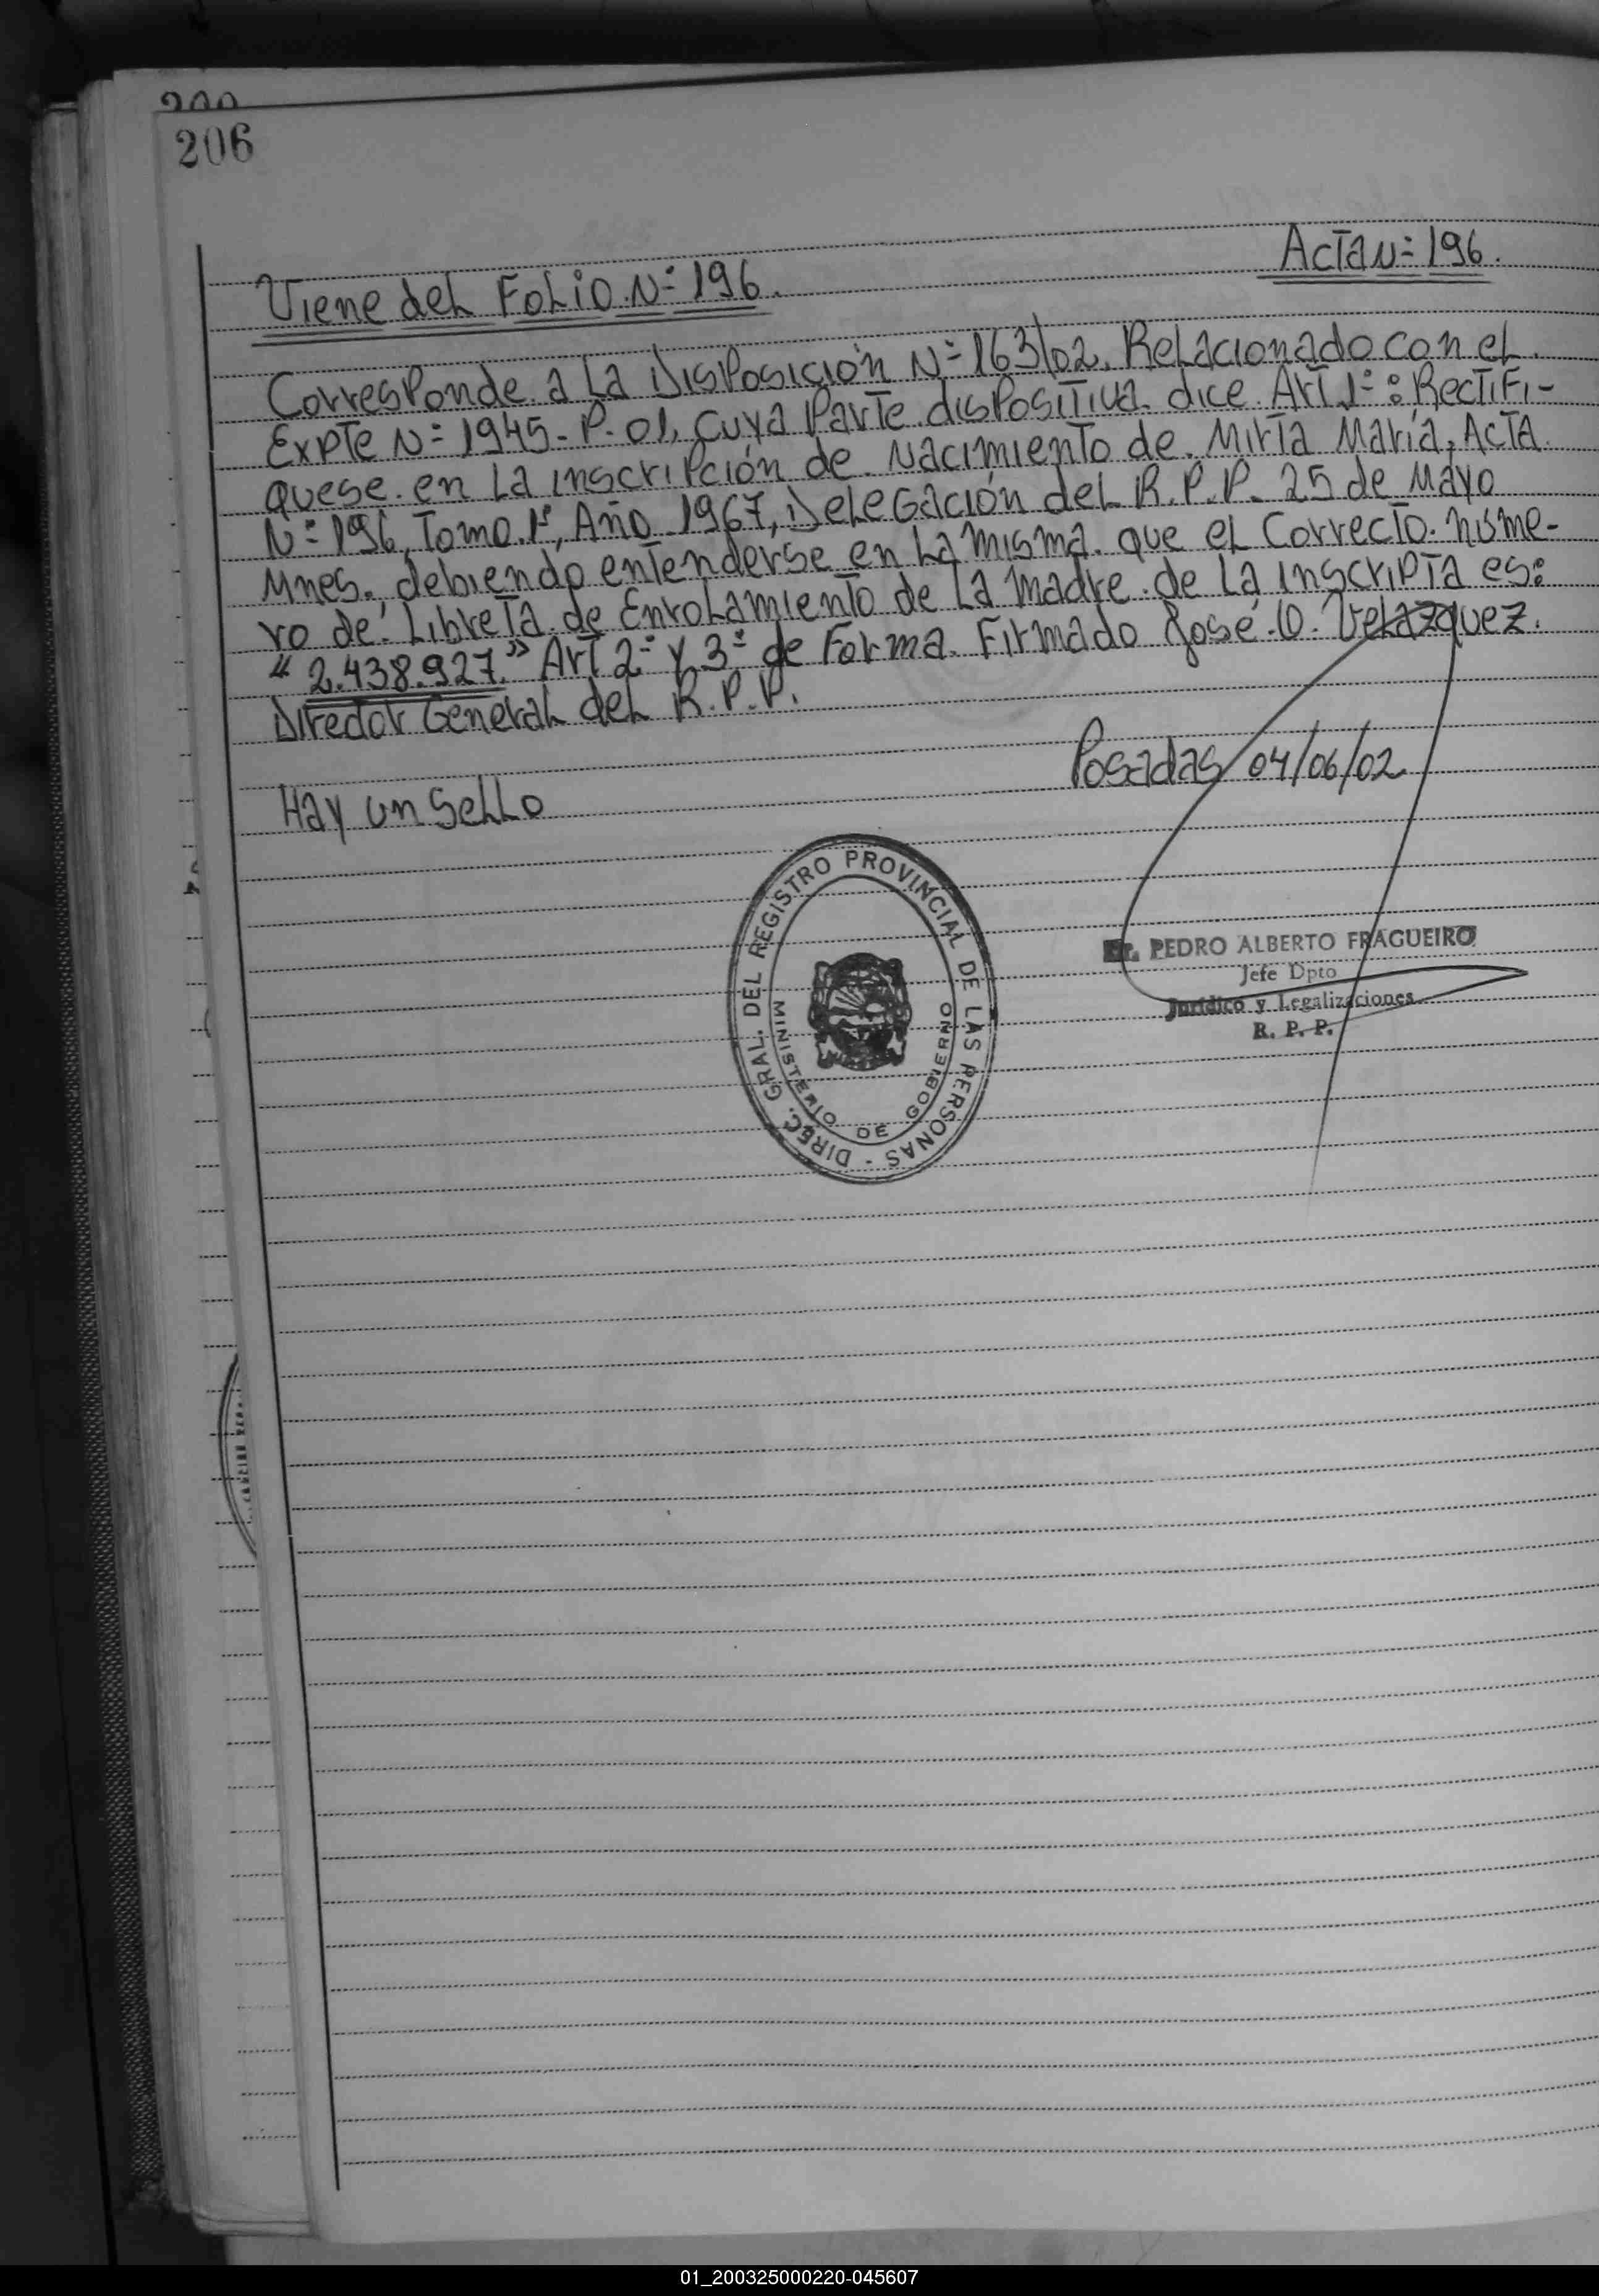 200
206
Acta N= 196.
Viene del Folio N= 196.
Corresponde a la Disposición N= 163/02. Relacionado con el
Expte N= 1945-P-01, cuya parte dispositiva dice Art 1=: Rectifi-
quese en la inscripción de Nacimiento de Mirta María, Acta
N= 196, Tomo 1º, Año 1967, Delegación del R.P.P. 25 de Mayo
Mnes. debiendo entenderse en la misma que el correcto núme-
ro de Libreta de Enrolamiento de la madre de la inscripta es:
"2.438.927." Art 2= y 3= de Forma. Firmado José O. Velazquez.
Director General del R.P.P.
Posadas 04/06/02
Hay un Sello
DIREC. GRAL. DEL REGISTRO PROVINCIAL DE LAS PERSONAS -
MINISTERIO DE GOBIERNO
PEDRO ALBERTO FRAGUEIRO
Jefe Dpto
Jurídico y Legalizaciones
R. P. P.
01_200325000220-045607